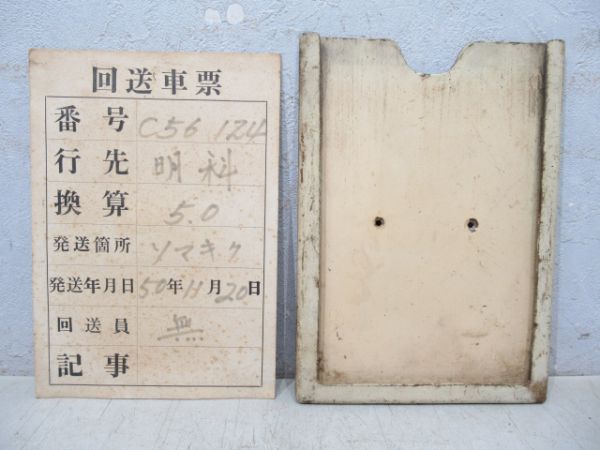 回送車票
番号 C56 124
行先 明科
換算 5.0
発送箇所 ソマキク
発送年月日 50年11月20日
回送員 無
記事